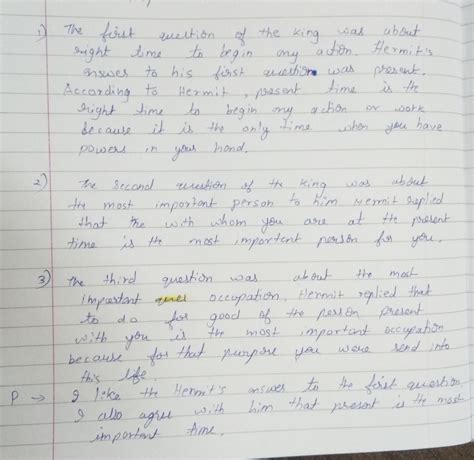 1) The first question of the king was about
right time to begin any action. Hermit's
answer to his first question was present.
According to Hermit, present time is the
right time to begin any action or work
because it is the only time when you have
powers in your hand.
2) The Second question of the King was about
the most important person to him Hermit replied
that the with whom you are at the present
time is the most important person for you.
3) The third question was about the most
important ques occupation. Hermit replied that
to do for good of the person present
with you is the most important occupation
because for that purpose you were send into
this life.
P → I like the Hermit's answer to the first question
I also agree with him that present is the most
important time.